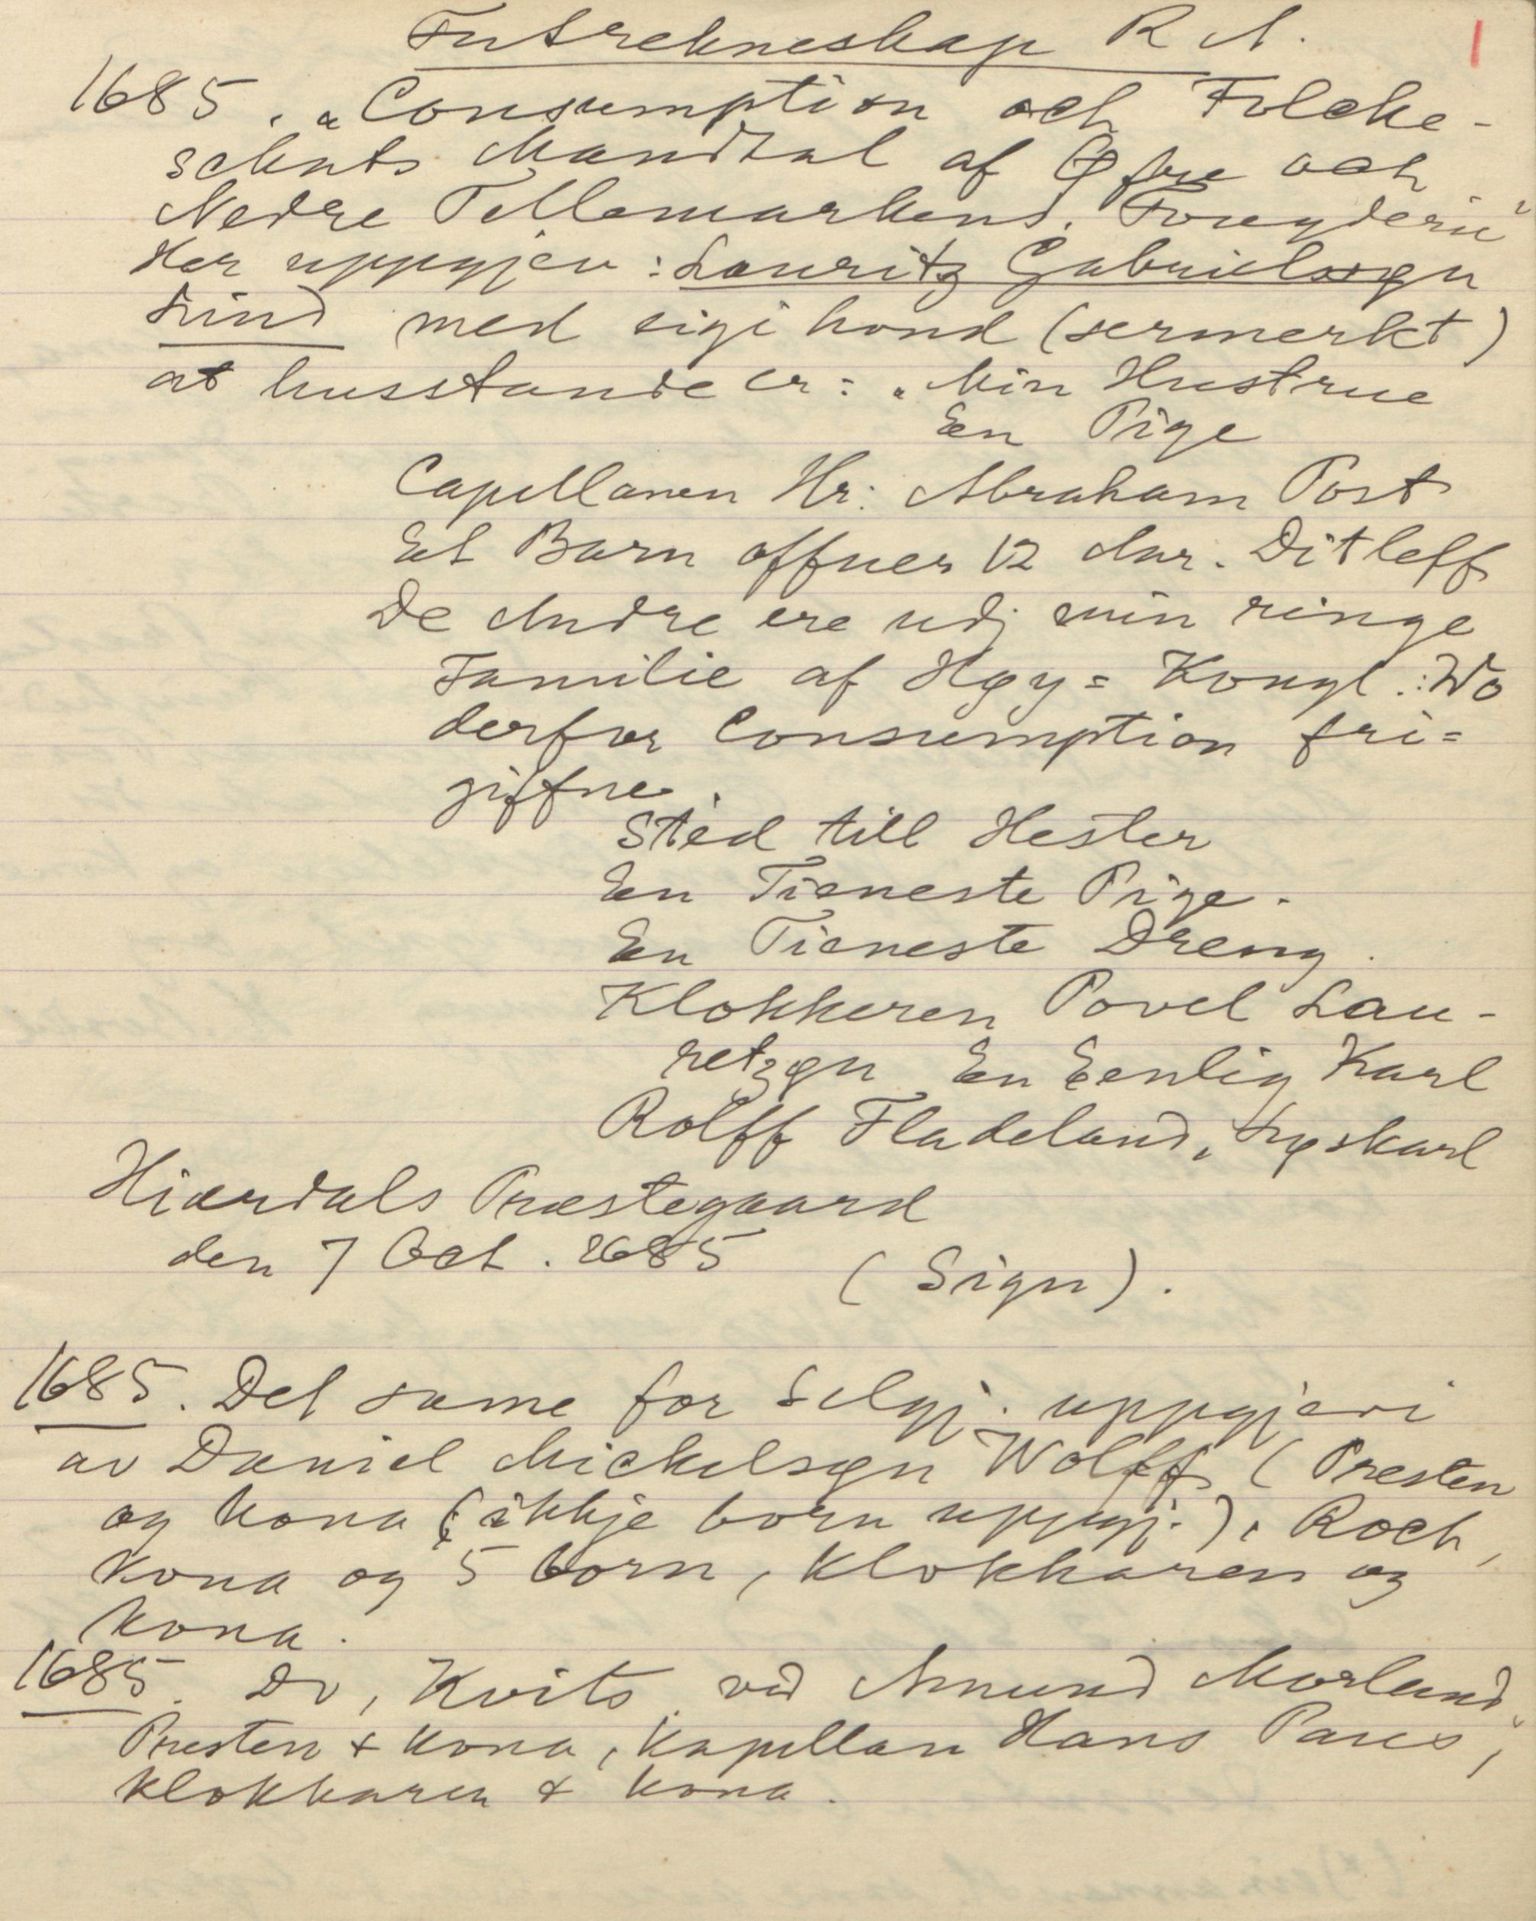 Futrekneskap R A.
1
1685. „Consumption och Folcke-
schats Mandtal af Øfre och
Nedre Tellemarkens. Fougderie"
Her uppgjev: Lauritz Gabrielsøn
Lind med eigi hond (sermerkt)
at husstande er: „Min Hustrue
En Pige
Capellanen Hr: Abraham Post
Et Barn offuer 12 Aar. Ditleff
De Andre ere udj min ringe
Familie af Høy= Kongl.: Mo
derfor Consumption fri=
giffne.
Sted till Hester
En Tieneste Pige.
En Tieneste Dreng.
Klokkeren Povel Lau-
retzøn En Eenlig Karl
Rolff Fladeland, Løskarl
Hiærdals Præstegaard
den 7 Oct. 1685 (Sign).
1685. Det same for Selgj. uppgjevi
av Daniel Mickelsøn Wolff (Presten
og kona (ikkje born uppgj.), Roch,
kona og 5 born, Klokkaren og
kona.
1685. Do, Kvits. vid Amund Morland,
Presten + kona, kapellan Hans Paus,
klokkaren + kona.